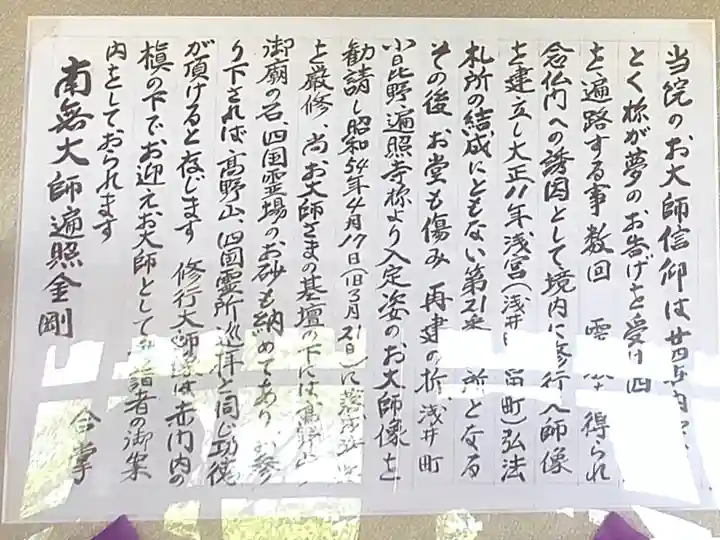 当院のお大師信仰は廿四
とく称が夢のお告げを受け四
を遍路する事数回 得られ
念仏門への誘因として境内に修行大師像
を建立し大正11年浅宮(浅井 町)弘法
札所の結成にともない第21 所となる
その後 お堂も傷み 再建の折 浅井町
小日比野 遍照寺様より入定姿のお大師像を
勧請し昭和54年4月17日(旧3月21日)に
を厳修、尚お大師さまの基壇の下には高野山
御廟の石、四国霊場のお砂も納めてあり お参
り下されば、高野山、四国霊所巡拝と同じ功徳
が頂けると存じます 修行大師 は赤門内の
槇の下でお迎えお大師として 詣者の御案
内をしておられます 合掌
南無大師遍照金剛